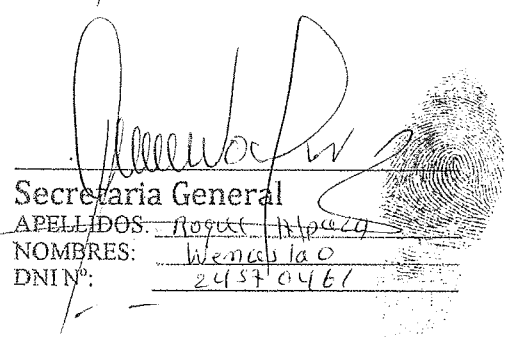 Secretaria General
APELLIDOS: Roque
NOMBRES: Wenceslao
DNI Nº: 24570461